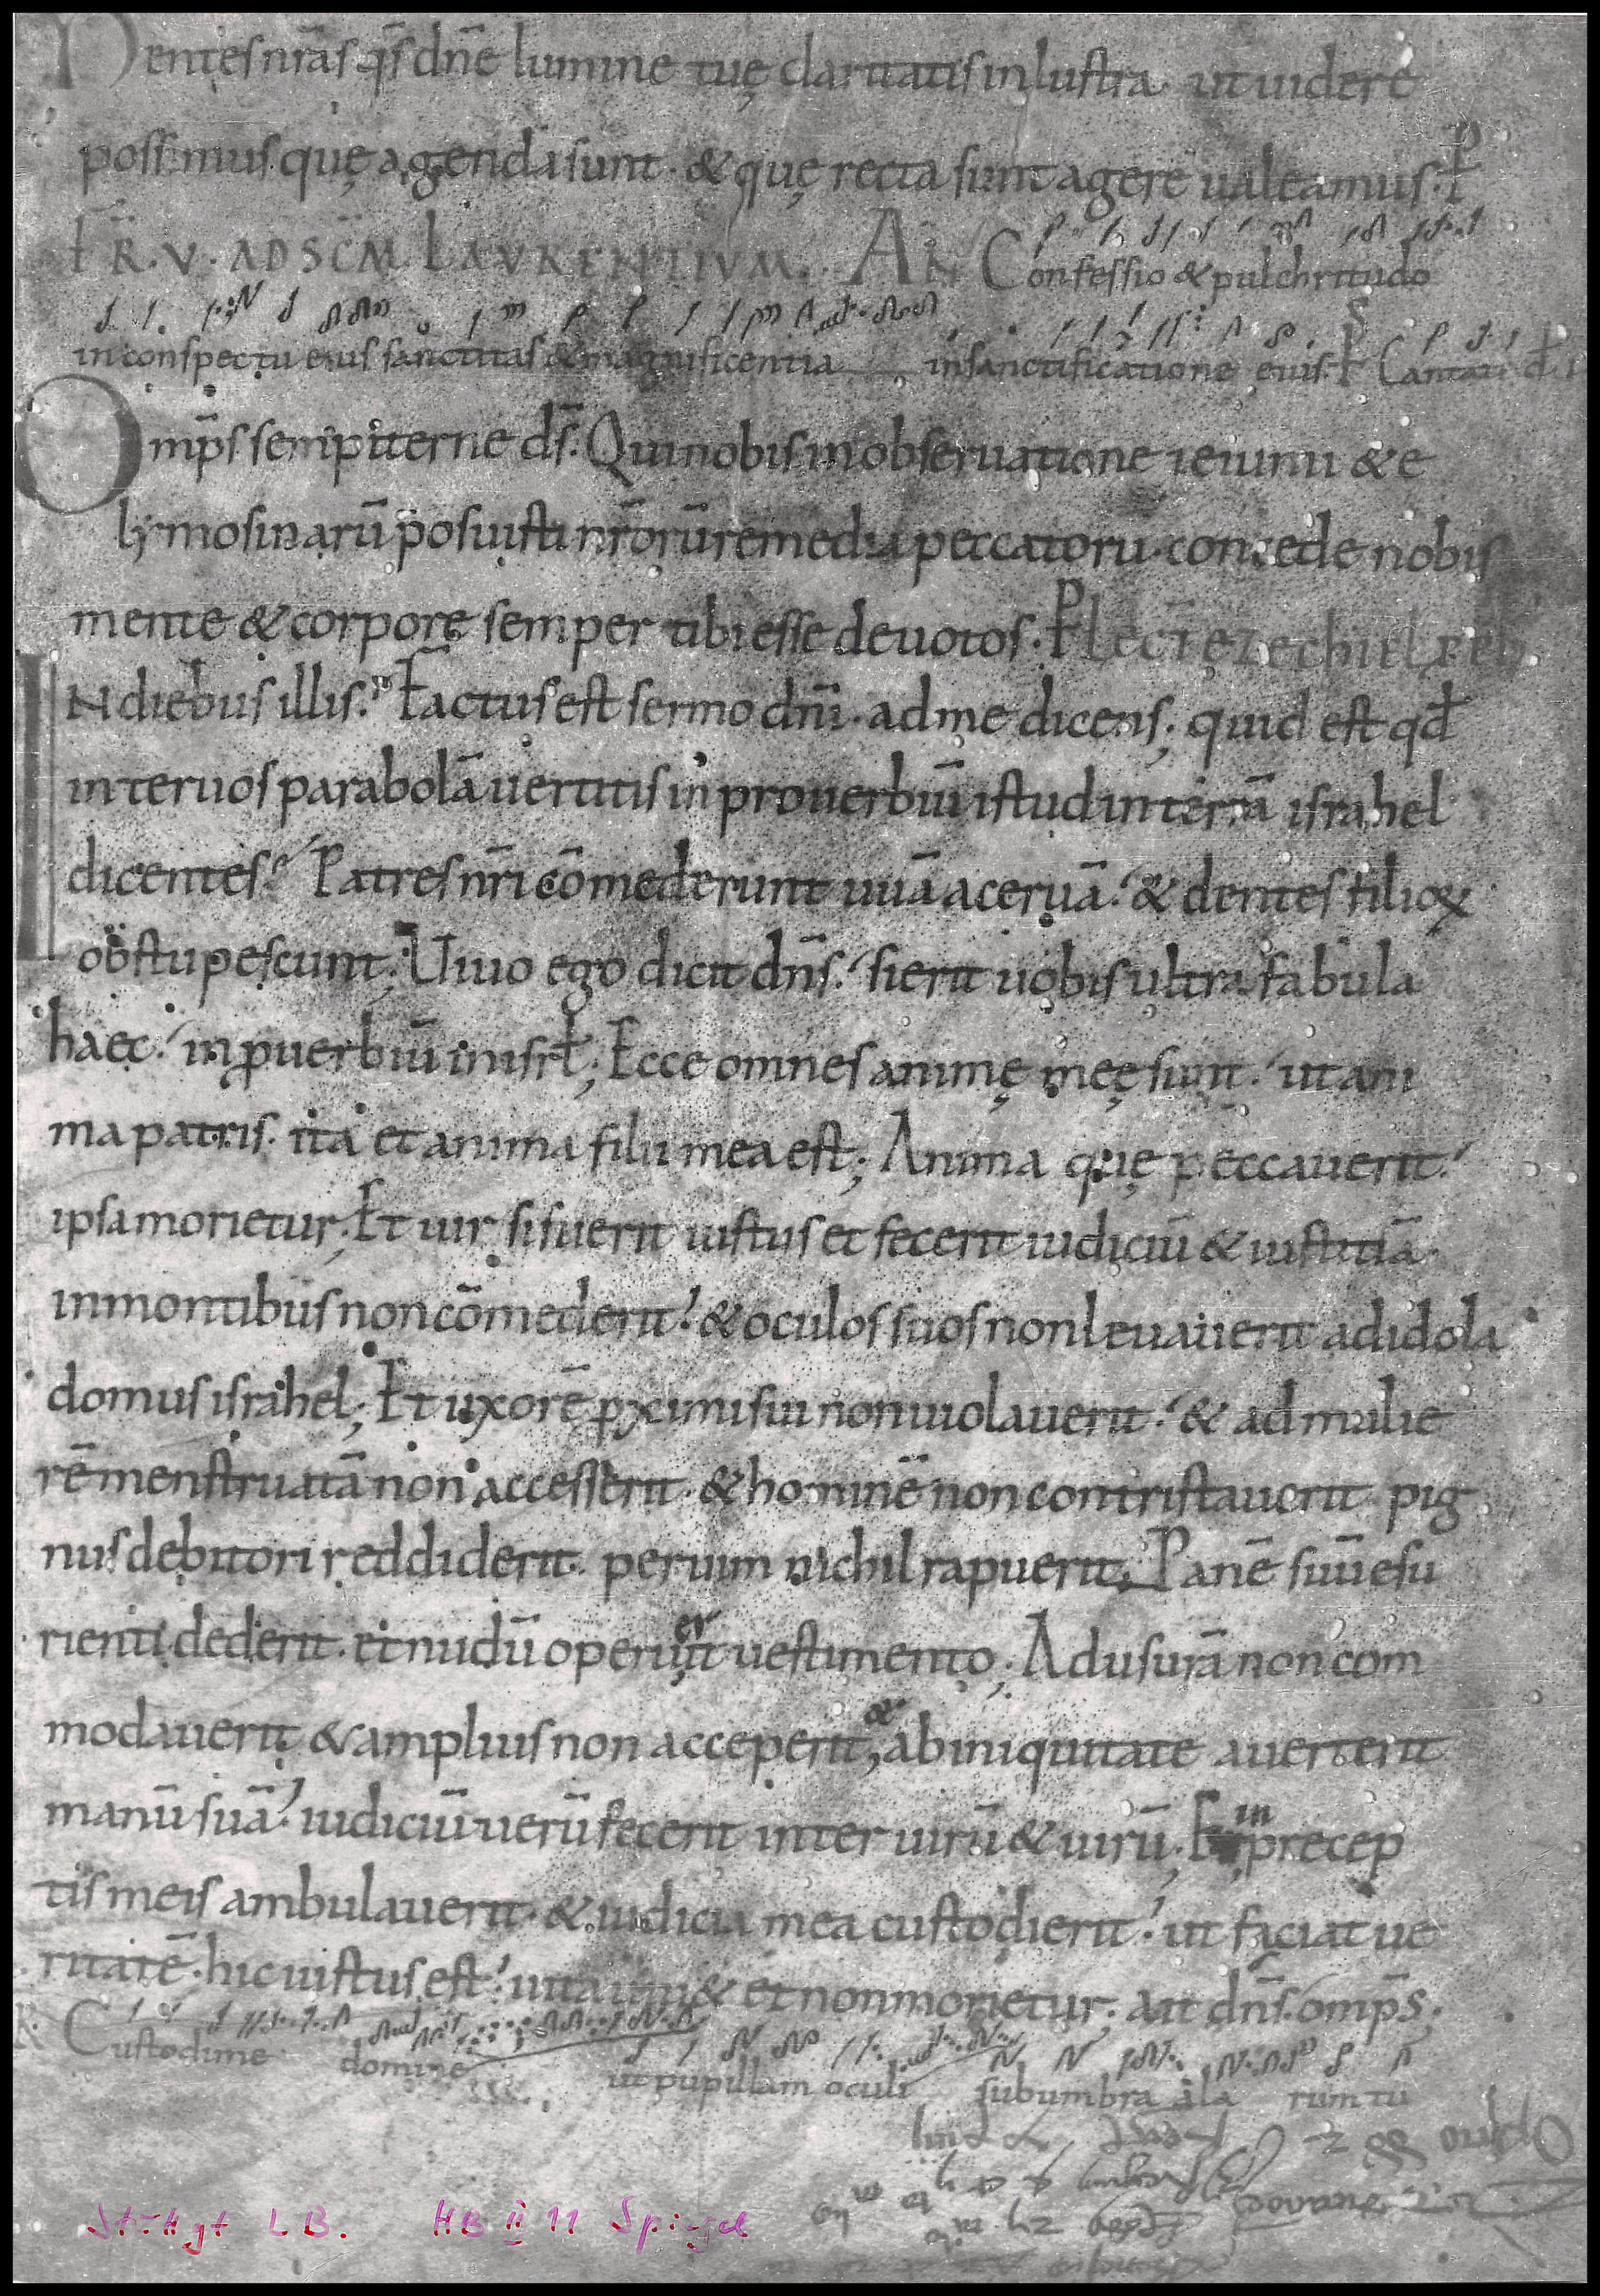 Mentes nr̄as qs̄ dn̄e lumine tuę claritatis inlustra ut uidere
possimus quę agenda sunt · & quę recta sunt agere ualeamus · P
FR̄ · V · AD SC̄M LAVRENTIVM · AN Confessio & pulchritudo
in conspectu eius sanctitas & magnificentia in sanctificatione eius · Ps Cantate
Omp̄s sempiterne ds̄ · Qui nobis in obseruatione ieiunii & e
lymosinarū posuisti nr̄orū remedia peccatorū · concede nobis
mente & corpore semper tibi esse deuotos · P Lec̄t ezechiel p̄ph
IN diebus illis · Factus est sermo dn̄i · ad me dicens ; quid est qđ
inter uos parabolā uertitis in prouerbiū istud in terrā israhel
dicentes · Patres nr̄i cōmederunt uuā aceruā · & dentes filioꝝ
obstupescunt ; Uiuo ego dicit dn̄s · si erit uobis ultra fabula
haec · in ꝓuerbiū in isrl̄ ; Ecce omnes animę męę sunt · ut ani
ma patris · ita et anima filii mea est ; Anima quę peccauerit ·
ipsa morietur ; Et uir si fuerit iustus et fecerit iudiciū & iustitiā ·
in montibus non cōmederit · & oculos suos non leuauerit ad idola
domus israhel ; Et uxorē ꝓximi sui non uiolauerit · & ad mulie
rē menstruatā non accesserit · & hominē non contristauerit pig
nus debitori reddiderit · per uim nichil rapuerit ; Panē suū esu
rienti dederit · et nudū operuerit uestimento ; Ad usurā non com
modauerit & amplius non acceperit ; & ab iniquitate auerterit
manū suā · iudiciū uerū fecerit inter uirū & uirū ; in precep
tis meis ambulauerit · & iudicia mea custodierit · ut faciat ue
ritatē · hic iustus est · uita uiu& et non morietur · ait dn̄s · omp̄s ·
R. Custodi me domine ut pupillam oculi sub umbra alarum tu
Stuttgt LB. HB II 11 Spiegel